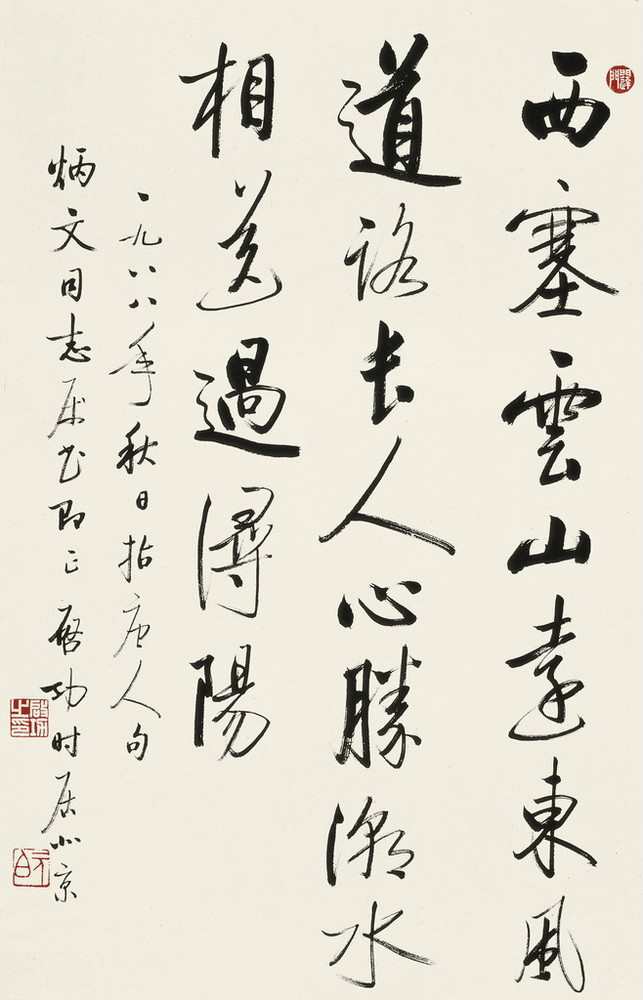 西塞雲山遠東風
道路长人心勝潮水
相送過潯陽
一九八八年秋日拈唐人句
炳文同志属书即正 啓功时居北京
啟功之印
元白